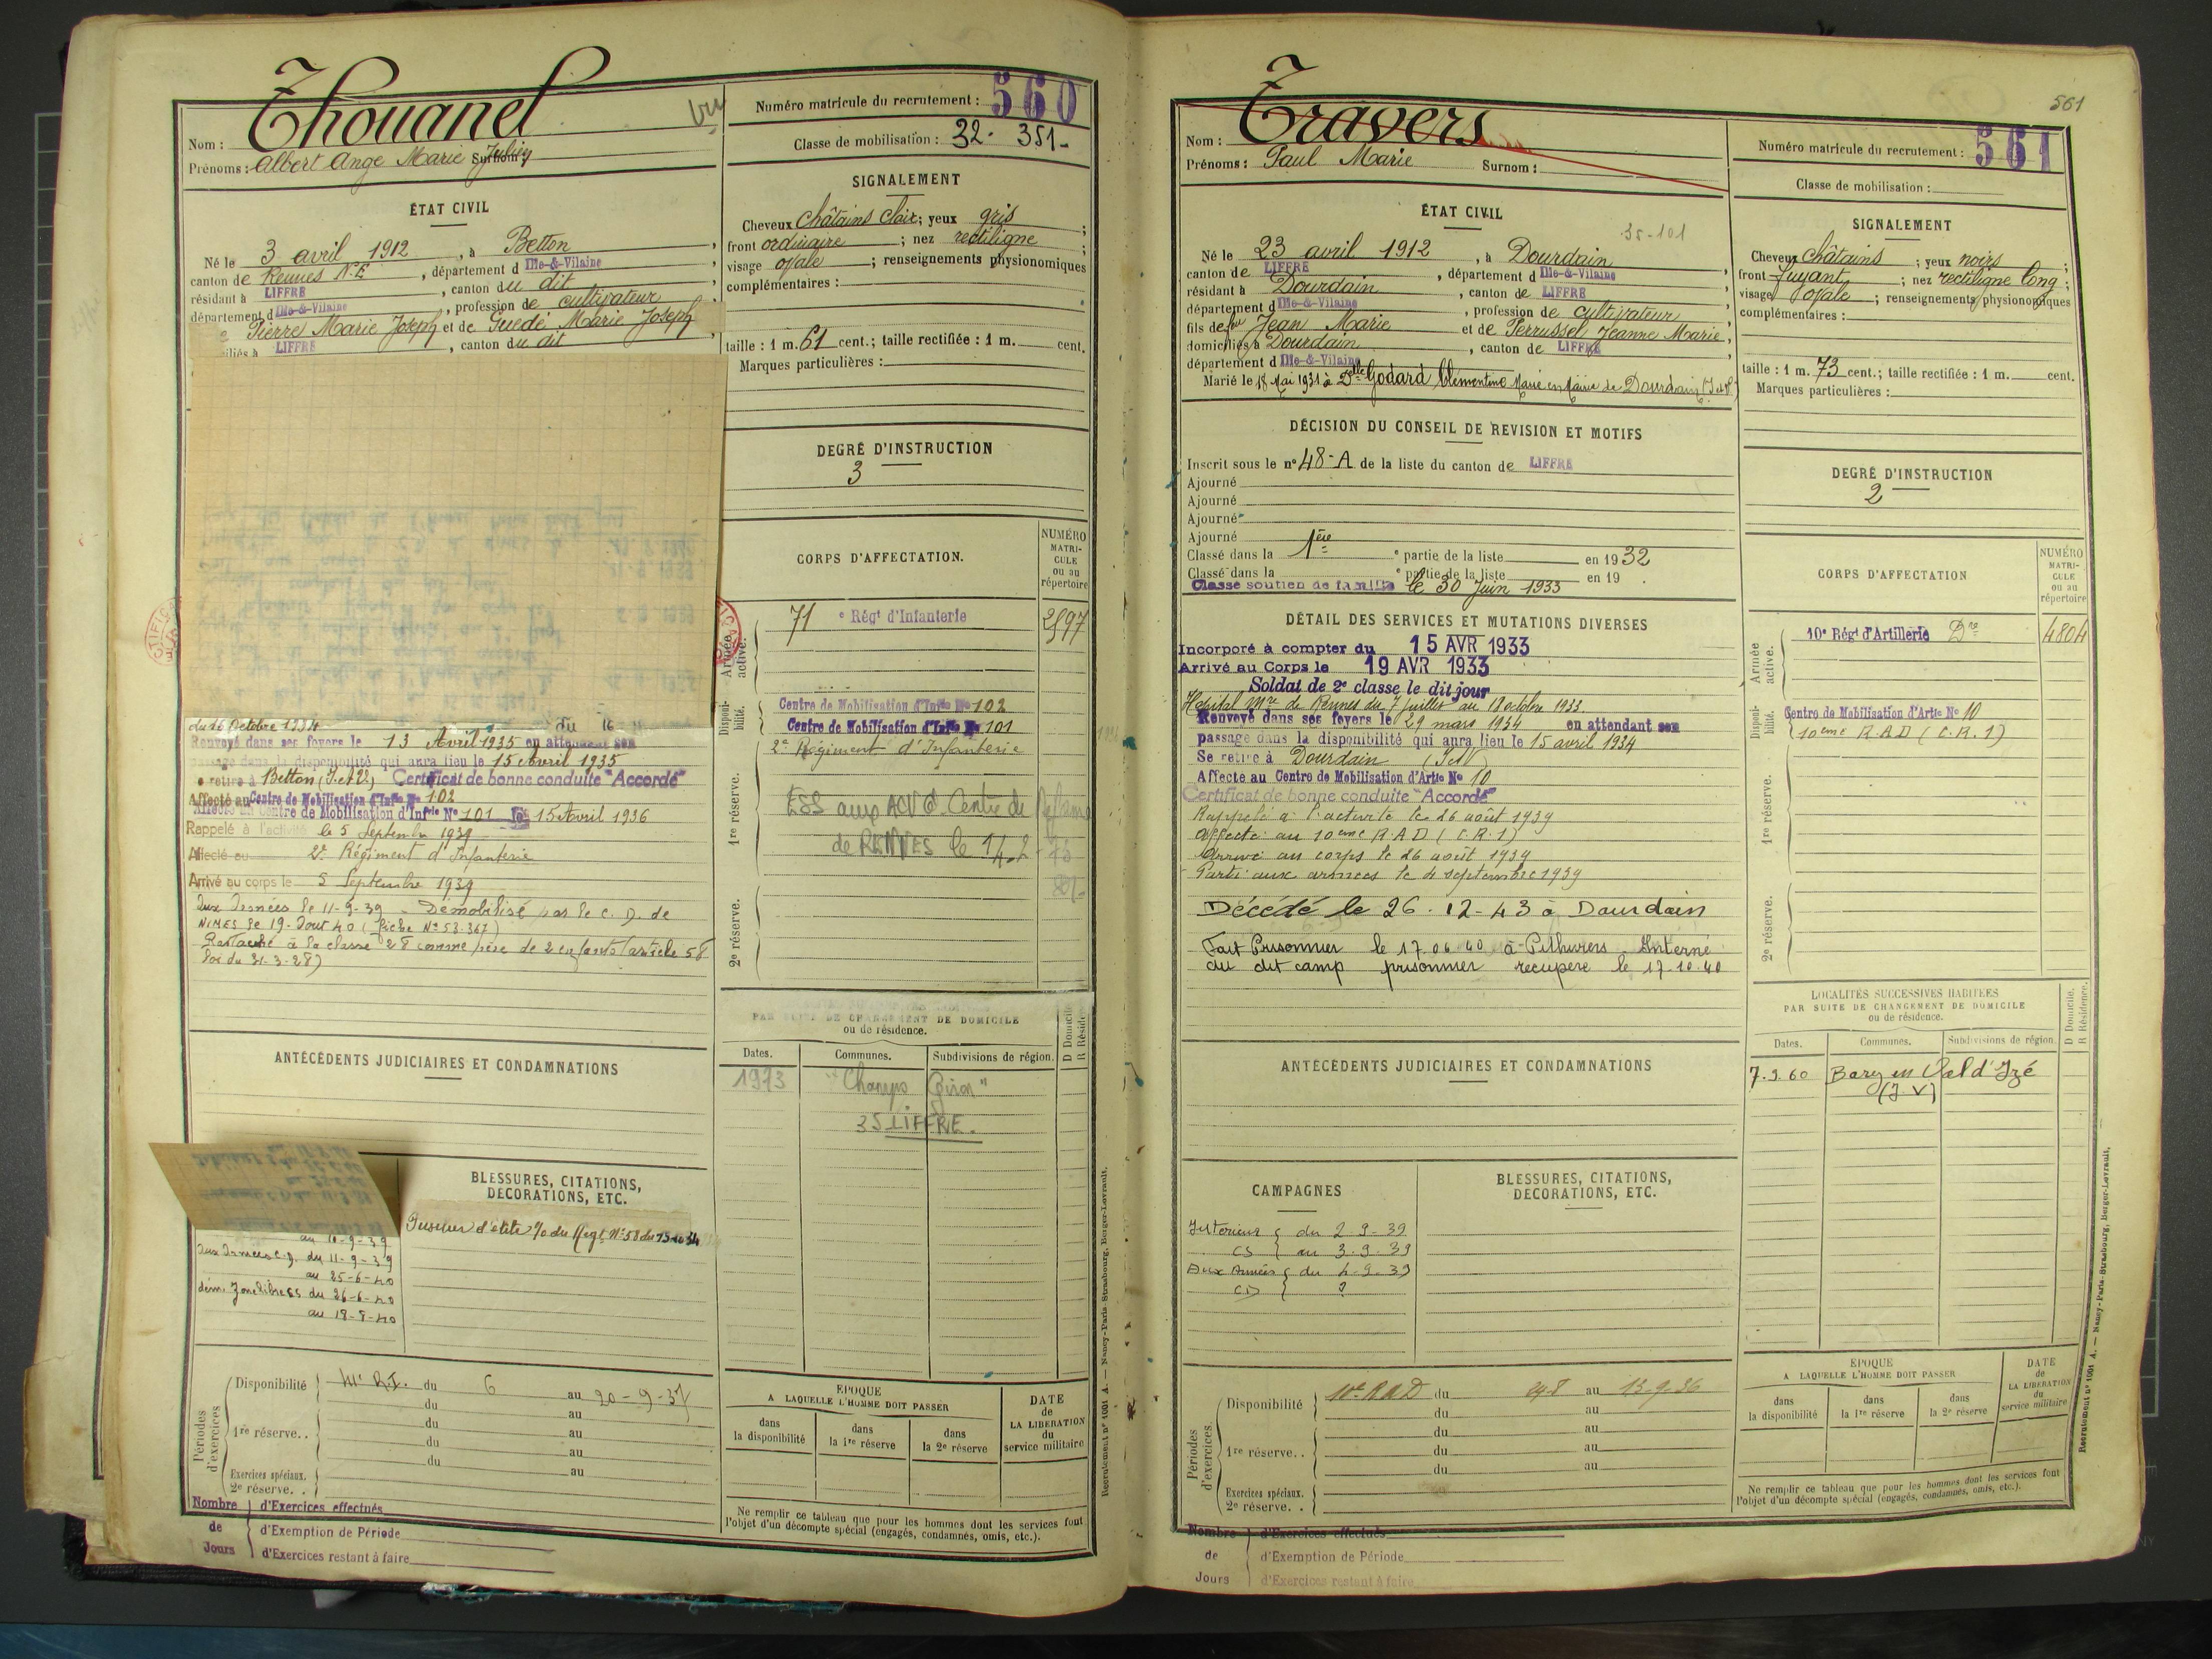 Thouanel
vu
Nom :
Prénoms : Albert Ange Marie Julien Surnom :
Numéro matricule du recrutement : 560
Classe de mobilisation : 32- 351-
ÉTAT CIVIL
Né le 3 avril 1912, à Betton,
canton de Rennes N.E, département d Ille-&-Vilaine
résidant à LIFFRÉ, canton du dit
département d Ille-&-Vilaine, profession de cultivateur
Pierre Marie Joseph et de Guedé Marie Joseph
LIFFRÉ, canton du dit
du 16 Octobre 1934 du 16
Renvoyé dans ses foyers le 13 Avril 1935 en attendant son
passage dans la disponibilité qui aura lieu le 15 Avril 1935
Se retire à Betton (I.et V.) Certificat de bonne conduite "Accordé"
Affecté au Centre de Mobilisation d'Infie No 102
Affecté au Centre de Mobilisation d'Infrie No 101 le 15 Avril 1936
Rappelé à l'activité le 5 Septembre 1939
Affecté au 2e Régiment d'Infanterie
Arrivé au corps le 5 Septembre 1939
Aux Armées le 11-9-39 - Démobilisé par le C. D. de
NIMES le 19-Aout 40 (fiche No 53.367)
Rattaché à la classe 28 comme père de 2 enfants (article 58
loi du 31-3-28)
ANTÉCÉDENTS JUDICIAIRES ET CONDAMNATIONS
BLESSURES, CITATIONS,
DÉCORATIONS, ETC.
au 10-9-39
Aux Armées C.D. du 11-9-39
au 25-6-40
dém. Zone libre CS du 26-6-40
au 19-8-40
Périodes d'exercices
Disponibilité du 6 au 20-9-37
du au
1re réserve.. du au
du au
du au
Exercices spéciaux.
2e réserve. . au
Nombre de Jours
d'Exercices effectués
d'Exemption de Période
d'Exercices restant à faire
SIGNALEMENT
Cheveux châtains clair; yeux gris;
front ordinaire; nez rectiligne;
visage ovale; renseignements physionomiques
complémentaires :
taille : 1 m. 61 cent.; taille rectifiée : 1 m. cent.
Marques particulières :
DEGRÉ D'INSTRUCTION
3
CORPS D'AFFECTATION.
NUMÉRO MATRICULE ou au répertoire
Armée active.
71e Régt d'Infanterie 2597
Disponibilité.
Centre de Mobilisation d'Infie No 102
Centre de Mobilisation d'Infie No 101
2e Régiment d'Infanterie
1re réserve.
de RENNES le 14-2-73
2e réserve.
PAR SUITE DE CHANGEMENT DE DOMICILE
ou de résidence.
D Domicile.
R Résidence.
Dates. Communes. Subdivisions de région.
1973
35 LIFFRE.
ÉPOQUE
A LAQUELLE L'HOMME DOIT PASSER
dans la disponibilité
dans la 1re réserve
dans la 2e réserve
DATE de LA LIBÉRATION du service militaire
Ne remplir ce tableau que pour les hommes dont les services font
l'objet d'un décompte spécial (engagés, condamnés, omis, etc.).
Recrutement no 1001 A. — Nancy-Paris-Strasbourg, Berger-Levrault.
561
Travers
Nom :
Prénoms : Paul Marie Surnom :
Numéro matricule du recrutement : 561
Classe de mobilisation :
ÉTAT CIVIL
35-101
Né le 23 avril 1912, à Dourdain,
canton de LIFFRÉ, département d Ille-&-Vilaine
résidant à Dourdain, canton de LIFFRÉ
département d Ille-&-Vilaine, profession de cultivateur
fils de feu Jean Marie et de Perrussel Jeanne Marie,
domiciliés à Dourdain, canton de LIFFRÉ
département d Ille-&-Vilaine
Marié le 18 Mai 1931 à Delle Godard Clémentine Marie en Mairie de Dourdain (I et V.)
DÉCISION DU CONSEIL DE REVISION ET MOTIFS
Inscrit sous le no 48-A de la liste du canton de LIFFRÉ
Ajourné
Ajourné
Ajourné
Ajourné
Classé dans la 1ère e partie de la liste en 1932
Classé dans la e partie de la liste en 19 .
Classé soutien de famille le 30 Juin 1933
DÉTAIL DES SERVICES ET MUTATIONS DIVERSES
Incorporé à compter du 15 AVR 1933
Arrivé au Corps le 19 AVR 1933
Soldat de 2e classe le dit jour
Hôpital Mre de Rennes du 7 juillet au 18 octobre 1933.
Renvoyé dans ses foyers le 29 mars 1934 en attendant son
passage dans la disponibilité qui aura lieu le 15 avril 1934
Se retire à Dourdain (I et V)
Affecté au Centre de Mobilisation d'Artie No 10
Certificat de bonne conduite "Accordé"
Rappelé à l'activité le 26 août 1939
Affecté au 10eme R.A.D (C.R.1)
Arrivé au corps le 26 août 1939
Parti aux armées le 4 septembre 1939
Décédé le 26-12-43 à Dourdain
Fait Prisonnier le 17 06 40 à Pithiviers Interné
au dit camp prisonnier recupere le 17-10-40
ANTÉCÉDENTS JUDICIAIRES ET CONDAMNATIONS
CAMPAGNES
Intérieur du 2-9-39
CS au 3-9-39
Aux Armées du 4-9-39
CD ?
BLESSURES, CITATIONS,
DÉCORATIONS, ETC.
Périodes d'exercices.
Disponibilité 10e RAD du 24-8 au 13-9-36
du au
1re réserve.. du au
du au
du au
Exercices spéciaux.
2e réserve. .
Nombre de Jours
d'Exercices effectués
d'Exemption de Période
d'Exercices restant à faire
SIGNALEMENT
Cheveux châtains; yeux noirs;
front fuyant; nez rectiligne long;
visage ovale; renseignements physionomiques
complémentaires :
taille : 1 m. 73 cent.; taille rectifiée : 1 m. cent.
Marques particulières :
DEGRÉ D'INSTRUCTION
2
CORPS D'AFFECTATION
NUMÉRO MATRICULE ou au répertoire
Armée active.
10e Régt d'Artillerie Dre 4804
Disponibilité.
Centre de Mobilisation d'Artie No 10
10eme R.A.D (C.R.1)
1re réserve.
2e réserve.
LOCALITÉS SUCCESSIVES HABITÉES
PAR SUITE DE CHANGEMENT DE DOMICILE
ou de résidence.
D Domicile.
R Résidence.
Dates. Communes. Subdivisions de région.
7.9.60 en Val d'Izé
(I.V)
ÉPOQUE
A LAQUELLE L'HOMME DOIT PASSER
dans la disponibilité
dans la 1re réserve
dans la 2e réserve
DATE de LA LIBÉRATION du service militaire
Ne remplir ce tableau que pour les hommes dont les services font
l'objet d'un décompte spécial (engagés, condamnés, omis, etc.).
Recrutement no 1001 A. — Nancy-Paris-Strasbourg, Berger-Levrault.